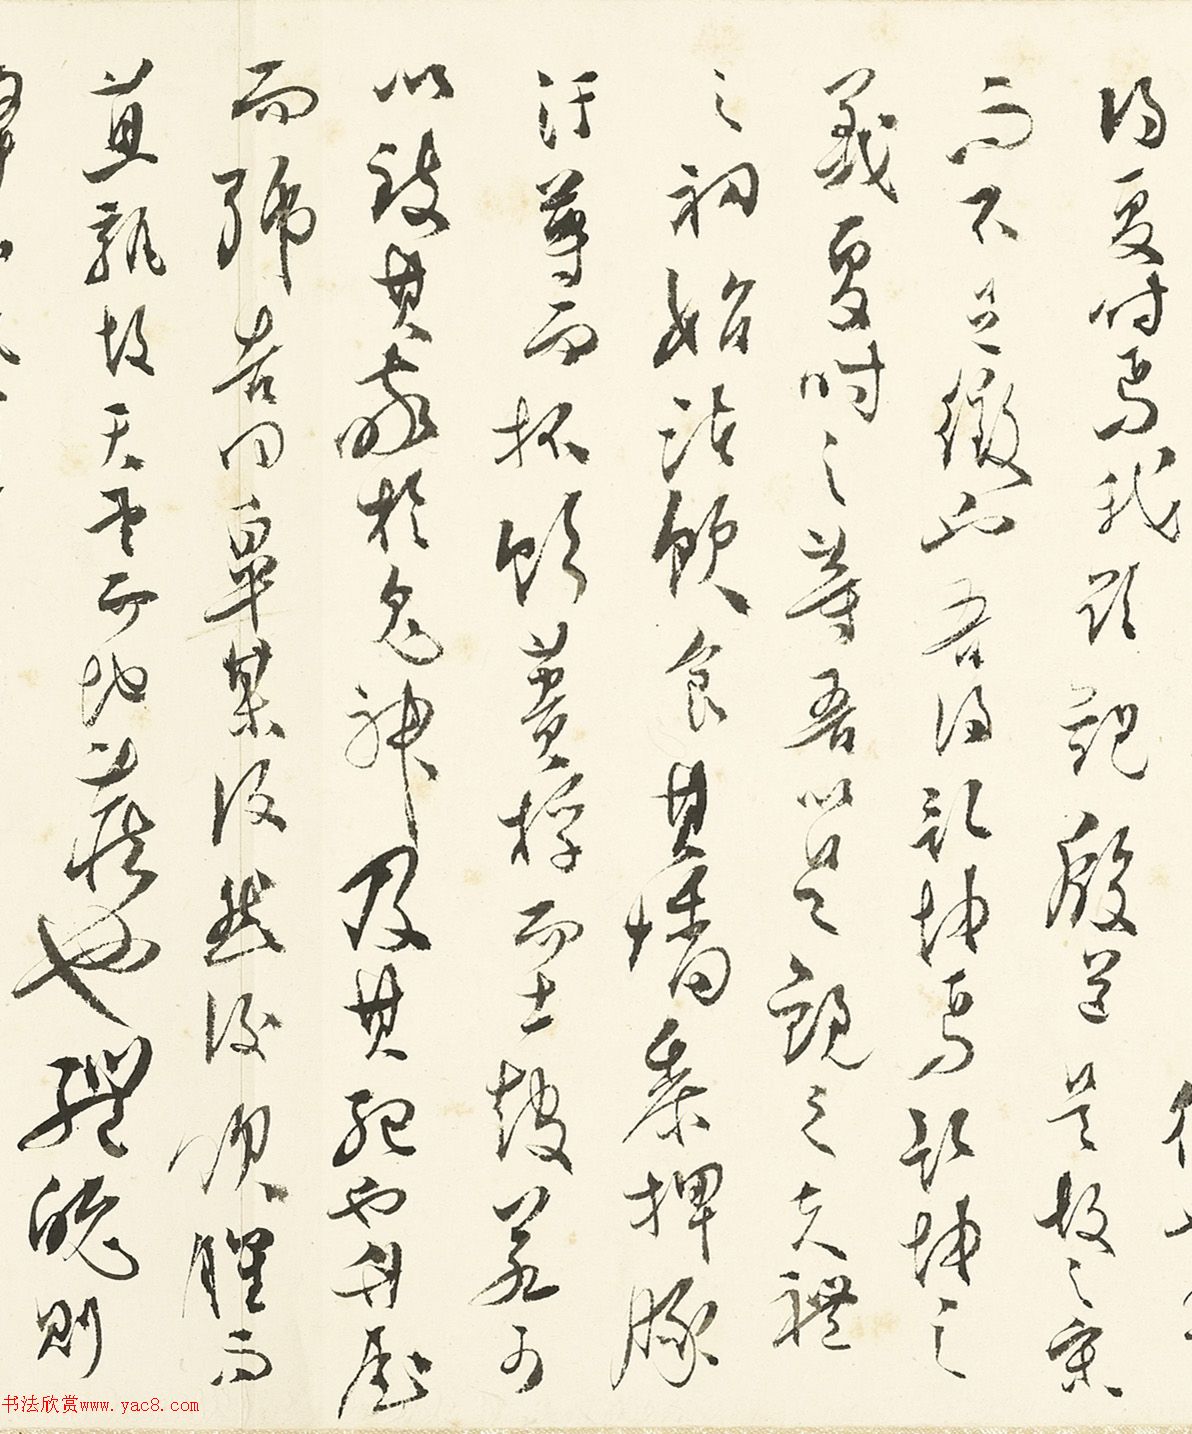 得夏時焉我欲觀殷道是故之宋
而不足徵也吾得乾坤焉乾坤之
義夏時之等吾以是觀之夫禮
之初始諸飲食其燔黍捭豚
汙尊而抔飲蕢桴而土鼓若可
以致其敬於鬼神及其死也升屋
而號告曰皋某復然後飯腥而
苴孰故天望而地藏也體魄則
书法欣赏www.yac8.com